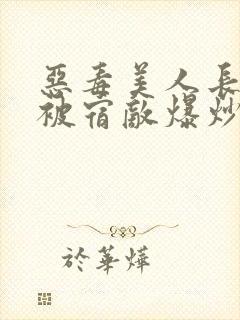 惡毒美人長
被宿敵爆炒
於華燁